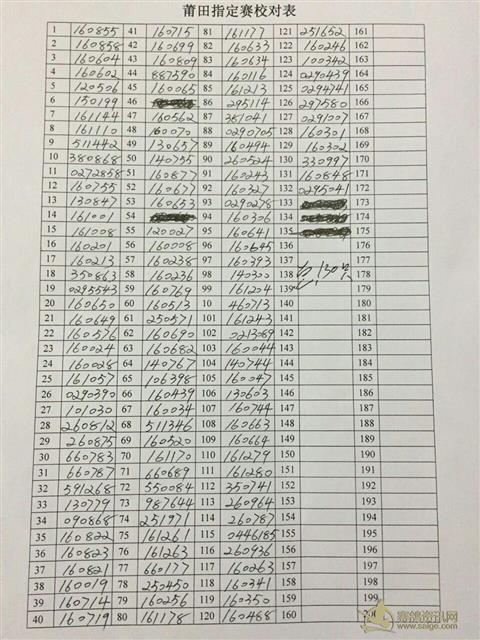 莆田指定赛校对表
1 160855 41 160715 81 161177 121 251652 161
2 160858 42 160699 82 160633 122 160246 162
3 160604 43 160809 83 160634 123 100342 163
4 160602 44 887590 84 160116 124 0290439 164
5 120506 45 160065 85 161213 125 0294741 165
6 150199 46 86 295114 126 297580 166
7 161144 47 160562 87 381041 127 0291007 167
8 161110 48 160070 88 0290705 128 160301 168
9 511442 49 130657 89 160494 129 160302 169
10 380868 50 140755 90 260524 130 330997 170
11 0272858 51 160877 91 160243 131 160848 171
12 160755 52 160677 92 160327 132 0295041 172
13 130847 53 160653 93 0290278 133 173
14 161001 54 94 160306 134 174
15 161008 55 120027 95 160641 135 175
16 160201 56 160008 96 160645 136 176
17 160213 57 160238 97 160393 137 177
18 350863 58 160236 98 140300 138 178
19 0295543 59 160769 99 161204 139 179
20 160650 60 160513 10 460713 140 180
21 160649 61 250571 101 161243 141 181
22 160576 62 160690 102 0213089 142 182
23 160024 63 160682 103 160044 143 183
24 160028 64 140767 104 140744 144 184
25 161057 65 106398 105 160047 145 185
26 0290390 66 160439 106 130603 146 186
27 101030 67 160034 107 160744 147 187
28 260812 68 511346 108 160663 148 188
29 260875 69 160520 109 160664 149 189
30 660783 70 161170 110 161279 150 190
31 660787 71 660689 111 161280 151 191
32 591268 72 550084 112 350741 152 192
33 130779 73 987644 113 260964 153 193
34 090868 74 251971 114 260787 154 194
35 160822 75 161261 115 0446185 155 195
36 160823 76 161263 116 260936 156 196
37 160821 77 660766 117 160263 157 197
38 160019 78 250450 118 160341 158 198
39 160714 79 160256 119 160350 159 199
40 160719 80 161178 120 160488 160 200
赛鸽资讯网
www.saige.com